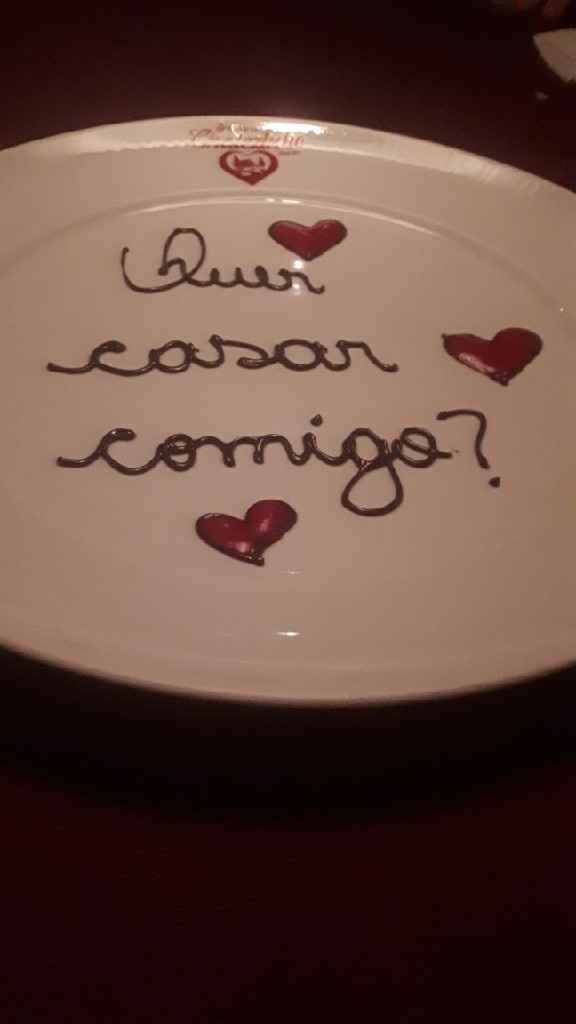 Quer
casar
comigo?